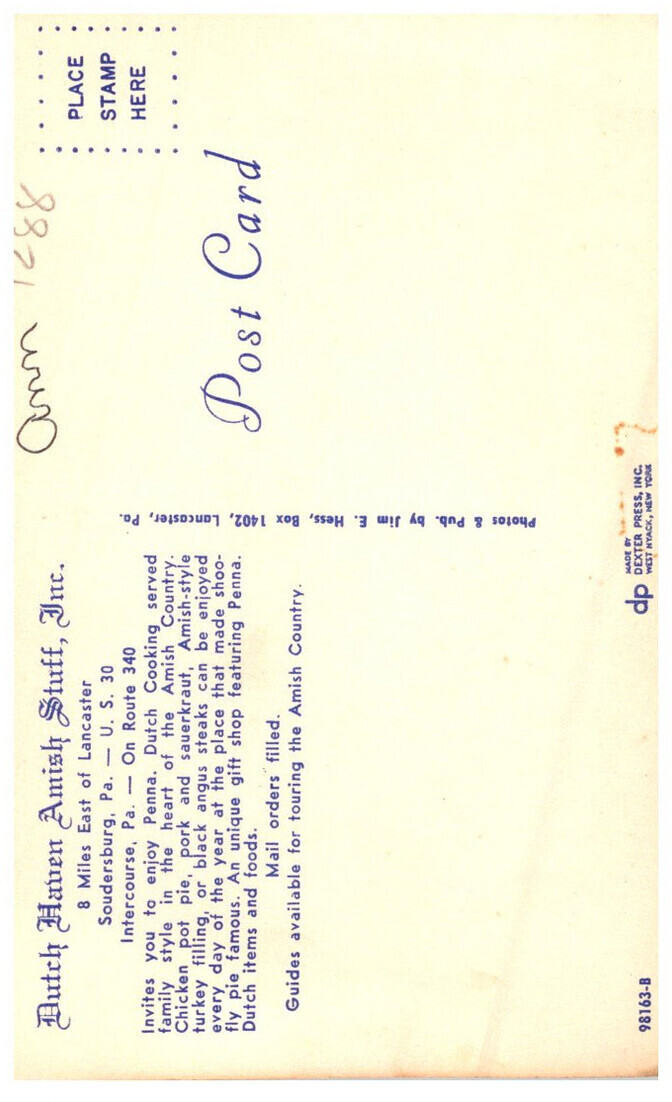 Dutch Haven Amish Stuff, Inc.
8 Miles East of Lancaster
Soudersburg, Pa. — U. S. 30
Intercourse, Pa. — On Route 340
Invites you to enjoy Penna. Dutch Cooking served
family style in the heart of the Amish Country.
Chicken pot pie, pork and sauerkraut, Amish-style
turkey filling, or black angus steaks can be enjoyed
every day of the year at the place that made shoo-
fly pie famous. An unique gift shop featuring Penna.
Dutch items and foods.
Mail orders filled.
Guides available for touring the Amish Country.
98163-B
Photos & Pub. by Jim E. Hess, Box 1402, Lancaster, Pa.
dp
MADE BY
DEXTER PRESS, INC.
WEST NYACK, NEW YORK
Post Card
1288
PLACE
STAMP
HERE